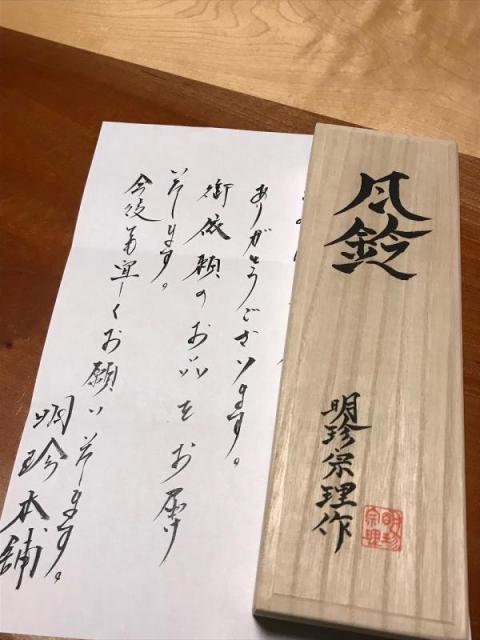 風鈴
明珍宗理作
明珍宗理
ありがとうございます。
御依頼のお品をお届け
致します。
今後共宜しくお願い致します。
明珍本舗